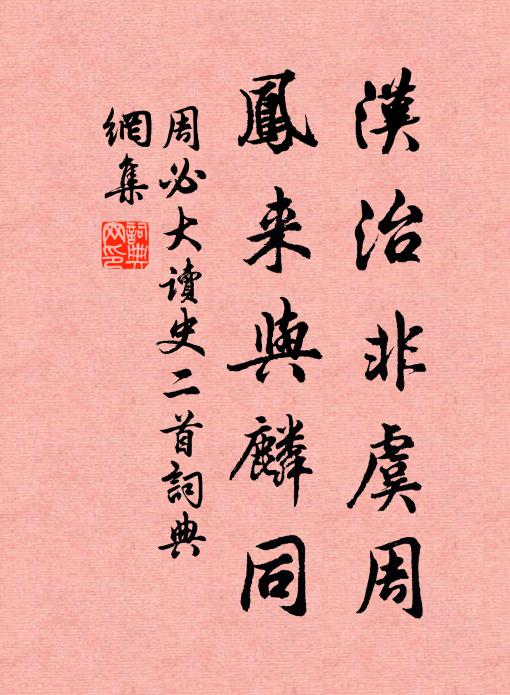 漢治非虞周
鳳来與麟同
周必大讀史二首詞典
網集
詞典
网印